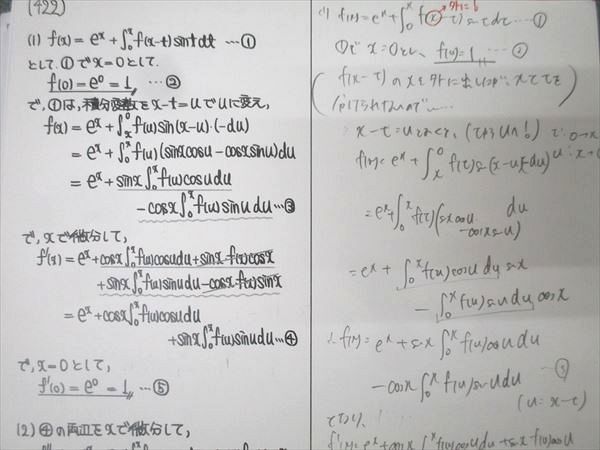 (422)
(1) f(x) = e^x + ∫_0^x f(x-t) sint dt …①
として、①でx=0として、
f(0) = e^0 = 1 …②
で、①は、積分変数をx-t=uでuに変え、
f(x) = e^x + ∫_x^0 f(u) sin(x-u)・(-du)
= e^x + ∫_0^x f(u)(sinx cosu - cosx sinu)du
= e^x + sinx∫_0^x f(u)cosu du
- cosx∫_0^x f(u) sinu du …③
で、xで微分して、
f'(x) = e^x + cosx∫_0^x f(u)cosu du + sinx・f(x)cosx
+ sinx∫_0^x f(u)sinu du - cosx・f(x)sinx
= e^x + cosx∫_0^x f(u)cosu du
+ sinx∫_0^x f(u)sinu du …④
で、x=0として、
f'(0) = e^0 = 1 …⑤
(2) ④の両辺をxで微分して、
f(x) = e^x + ∫_0^x f(x-t) s t dt …①
①でx=0とし、f(0)=1 …②
f(x-t) のxを外に
x-t=uとおくと、
f(x) = e^x + ∫_x^0 f(t) s (x-u)(-du)
= e^x + ∫_0^x f(t)(sx cosu - cosx s u) du
= e^x + ∫_0^x f(u)cosu du sx
- ∫_0^x f(u) su du cosx
∴ f(x) = e^x + sx ∫_0^x f(u) cosu du
- cosx ∫_0^x f(u) su du …③
(u = x-t)
f'(x) = e^x + cosx ∫_0^x f(u)cosu du + sx f(x)cosx